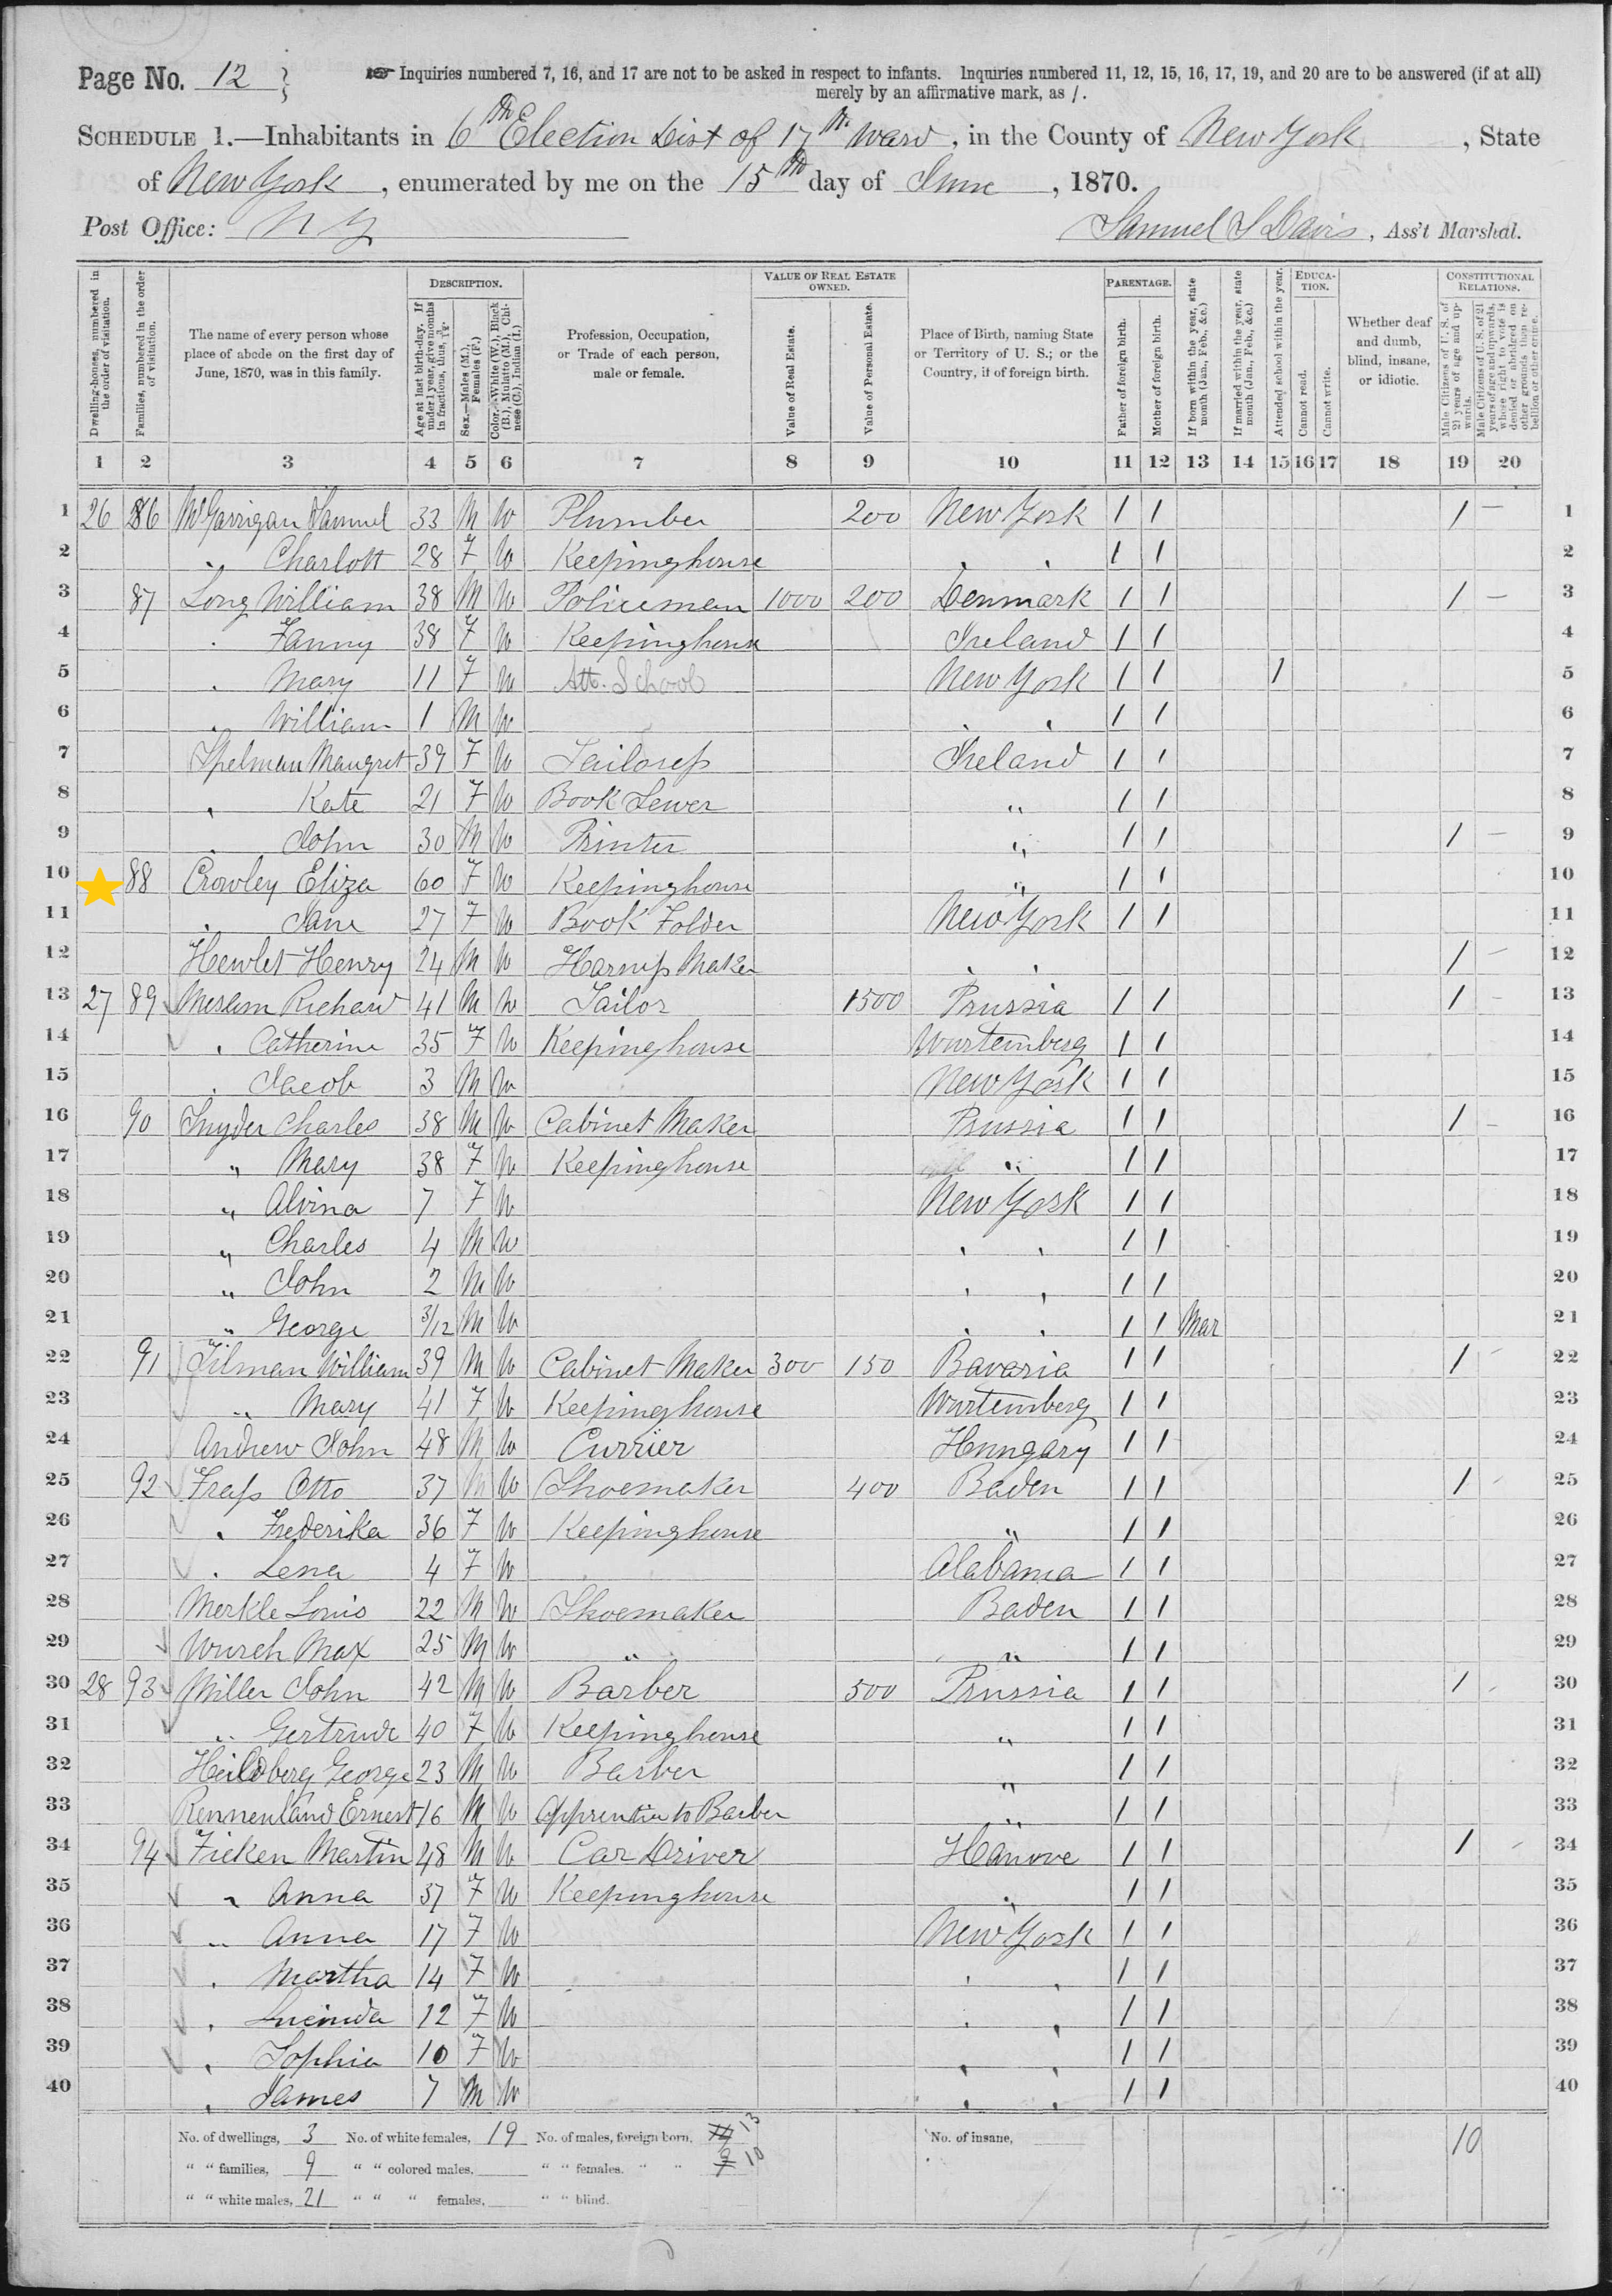 Page No. 12
Inquiries numbered 7, 16, and 17 are not to be asked in respect to infants. Inquiries numbered 11, 12, 15, 16, 17, 19, and 20 are to be answered (if at all)
merely by an affirmative mark, as /.
SCHEDULE 1.—Inhabitants in 6th Election Dist of 17th Ward, in the County of New York, State
of New York, enumerated by me on the 15th day of June, 1870.
Post Office: N Y
Samuel S Davis, Ass't Marshal.
Dwelling-houses, numbered in the order of visitation.
Families, numbered in the order of visitation.
The name of every person whose place of abode on the first day of June, 1870, was in this family.
DESCRIPTION.
Age at last birth-day. If under 1 year, give months in fractions, thus, 3/12.
Sex.—Males (M.), Females (F.)
Color.—White (W.), Black (B.), Mulatto (M.), Chinese (C.), Indian (I.)
Profession, Occupation, or Trade of each person, male or female.
VALUE OF REAL ESTATE OWNED.
Value of Real Estate.
Value of Personal Estate.
Place of Birth, naming State or Territory of U. S.; or the Country, if of foreign birth.
PARENTAGE.
Father of foreign birth.
Mother of foreign birth.
If born within the year, state month (Jan., Feb., &c.)
If married within the year, state month (Jan., Feb., &c.)
Attended school within the year.
EDUCATION.
Cannot read.
Cannot write.
Whether deaf and dumb, blind, insane, or idiotic.
CONSTITUTIONAL RELATIONS.
Male Citizens of U. S. of 21 years of age and upwards.
Male Citizens of U. S. of 21 years of age and upwards, whose right to vote is denied or abridged on other grounds than rebellion or other crime.
1 2 3 4 5 6 7 8 9 10 11 12 13 14 15 16 17 18 19 20
1 26 86 McGarrigan Samuel 33 M W Plumber 200 New York 1 1 1 – 1
2 " Charlott 28 F W Keepinghouse " " 1 1 2
3 87 Long William 38 M W Policeman 1000 200 Denmark 1 1 1 – 3
4 " Fanny 38 F W Keepinghouse Ireland 1 1 4
5 " Mary 11 F W Att. School New York 1 1 1 5
6 " William 1 M W " " 1 1 6
7 Spelman Maugret 39 F W Tailoress Ireland 1 1 7
8 " Kate 21 F W Book Sewer " 1 1 8
9 " John 30 M W Printer " 1 1 1 – 9
10 88 Crowley Eliza 60 F W Keepinghouse " 1 1 10
11 " Jane 27 F W Book Folder New York 1 1 11
12 Hewlet Henry 24 M W Harness Maker " " 1 – 12
13 27 89 Meslem Richard 41 M W Tailor 1500 Prussia 1 1 1 – 13
14 " Catherine 35 F W Keepinghouse Wurtemberg 1 1 14
15 " Jacob 3 M W New York 1 1 15
16 90 Snyder Charles 38 M W Cabinet Maker Prussia 1 1 1 – 16
17 " Mary 38 F W Keepinghouse " 1 1 17
18 " Alvina 7 F W New York 1 1 18
19 " Charles 4 M W " " 1 1 19
20 " John 2 M W " " 1 1 20
21 " George 3/12 M W " " 1 1 Mar 21
22 91 Tilman William 39 M W Cabinet Maker 300 150 Bavaria 1 1 1 – 22
23 " Mary 41 F W Keepinghouse Wurtemberg 1 1 23
24 Andrew John 48 M W Currier Hungary 1 1 24
25 92 Frass Otto 37 M W Shoemaker 400 Baden 1 1 1 – 25
26 " Frederika 36 F W Keepinghouse " 1 1 26
27 " Lena 4 F W Alabama 1 1 27
28 Merkle Louis 22 M W Shoemaker Baden 1 1 28
29 Wursch Max 25 M W " " 1 1 29
30 28 93 Miller John 42 M W Barber 500 Prussia 1 1 1 – 30
31 " Gertrude 40 F W Keepinghouse " 1 1 31
32 Heildberg George 23 M W Barber " 1 1 32
33 Rennenland Ernest 16 M W Apprentice to Barber " 1 1 33
34 94 Ficken Martin 48 M W Car Driver Hanove 1 1 1 – 34
35 " Anna 37 F W Keepinghouse " 1 1 35
36 " Anna 17 F W New York 1 1 36
37 " Martha 14 F W " " 1 1 37
38 " Lucinda 12 F W " " 1 1 38
39 " Sophia 10 F W " " 1 1 39
40 " James 7 M W " " 1 1 40
No. of dwellings, 3 No. of white females, 19 No. of males, foreign born, 13 No. of insane, 10
" " families, 9 " " colored males, " " females, " " 10
" " white males, 21 " " " females, " " blind.